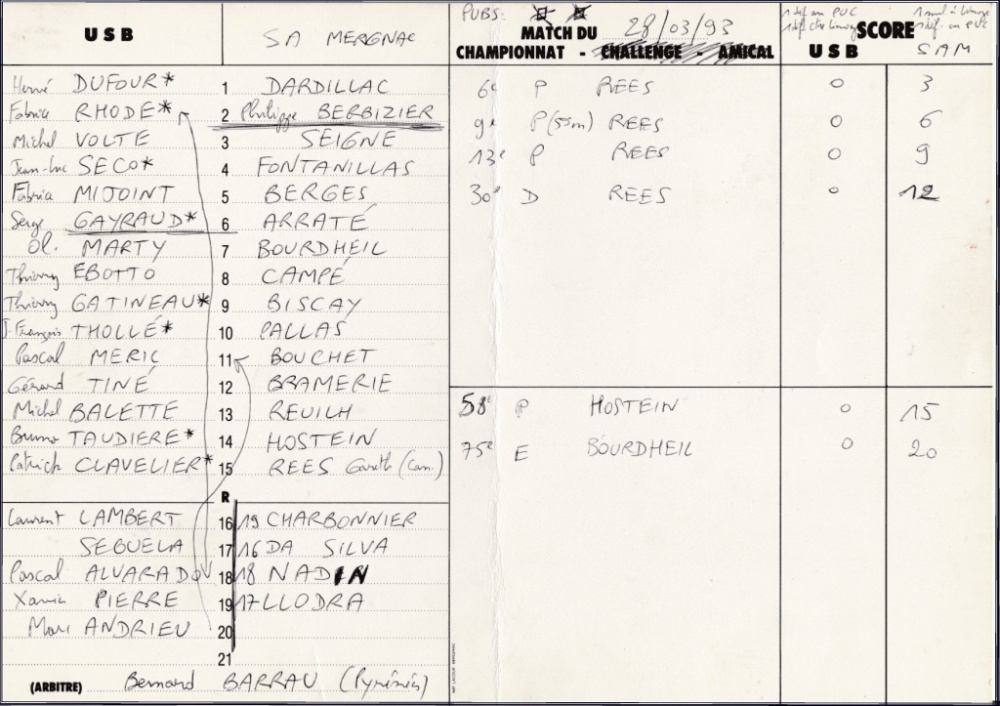 USB SA MERGNAC
Hervé DUFOUR* 1 DARDILLAC
Fabrice RHODE* 2 Philippe BERBIZIER
Michel VOLTE 3 SEIGNE
Jean-Luc SECO* 4 FONTANILLAS
Fabrice MIJOINT 5 BERGES
Serge GAYRAUD* 6 ARRATÉ
Ol. MARTY 7 BOURDHEIL
Thierry EBOTTO 8 CAMPÉ
Thierry GATINEAU* 9 BISCAY
J. François THOLLÉ* 10 PALLAS
Pascal MERIC 11 BOUCHET
Gérard TINÉ 12 BRAMERIE
Michel BALETTE 13 REUILH
Bruno TAUDIERE* 14 HOSTEIN
Patrick CLAVELIER* 15 REES Gareth (Can.)
R
Laurent LAMBERT 16 19 CHARBONNIER
SEGUELA 17 16 DA SILVA
Pascal ALVARADO 18 18 NADIN
Xavier PIERRE 19 17 LLODRA
Marc ANDRIEU 20
21
(ARBITRE) Bernard BARRAU (Pyrénées)
PUBS:
MATCH DU 28/03/93
CHAMPIONNAT - CHALLENGE - AMICAL
SCORE
USB SAM
6e P REES 0 3
9e P (55m) REES 0 6
13e P REES 0 9
30e D REES 0 12
58e P HOSTEIN 0 15
75e E BOURDHEIL 0 20